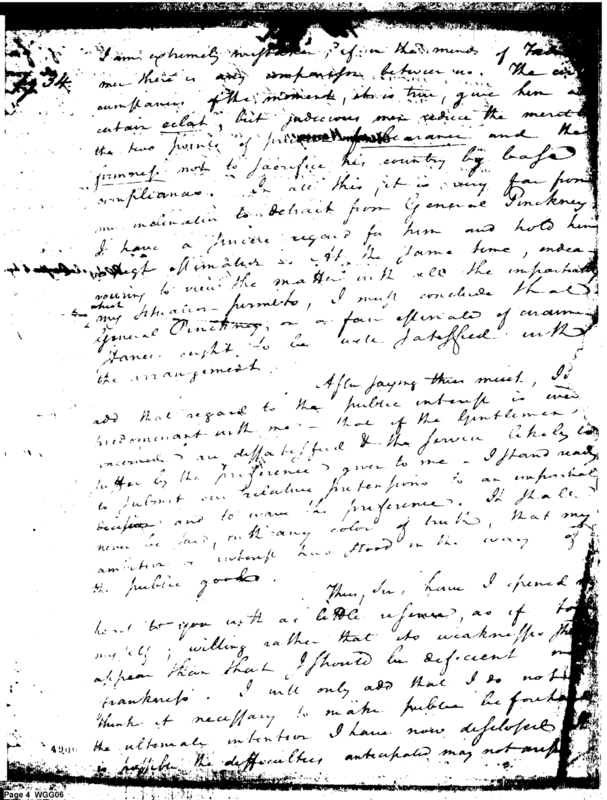 I am extremely mistaken, if in the minds of
men there is any comparison between us. The
cumstances of the moment, it is true, give him a
certain eclat, but judicious men reduce the merit
the two points of forbearance and the
firmness not to sacrifice his country by base
compliances. In all this, it is very far from
my inclination to detract from General Pinckney
I have a sincere regard for him and hold him
in high estimation. At the same time, endea-
vouring to view the matter with all the impartiality
which
my situation permits, I must conclude that
General Pinckney, on a fair estimate of circum
stances ought to be well satisfied with
the arrangement.
After saying thus much, I
add that regard to the public interest is ever
predominant with me - that if the Gentlemen
concerned are dissatisfied & the service likely to
suffer by the preference given to me - I stand ready
to submit our relative pretensions to an impartial
decision and to wave the preference. It shall
never be said, with any color of truth, that my
ambition or interest has stood in the way of
the public good.
Thus, Sir, have I opened
heart to you with as little reserve, as if to
myself; willing rather that its weaknesses
appear than that I should be deficient in
frankness. I will only add that I do not
think it necessary to make public beforehand
the ultimate intention I have now disclosed. It
is possible the difficulties anticipated may not arise
Page 4 WGG06